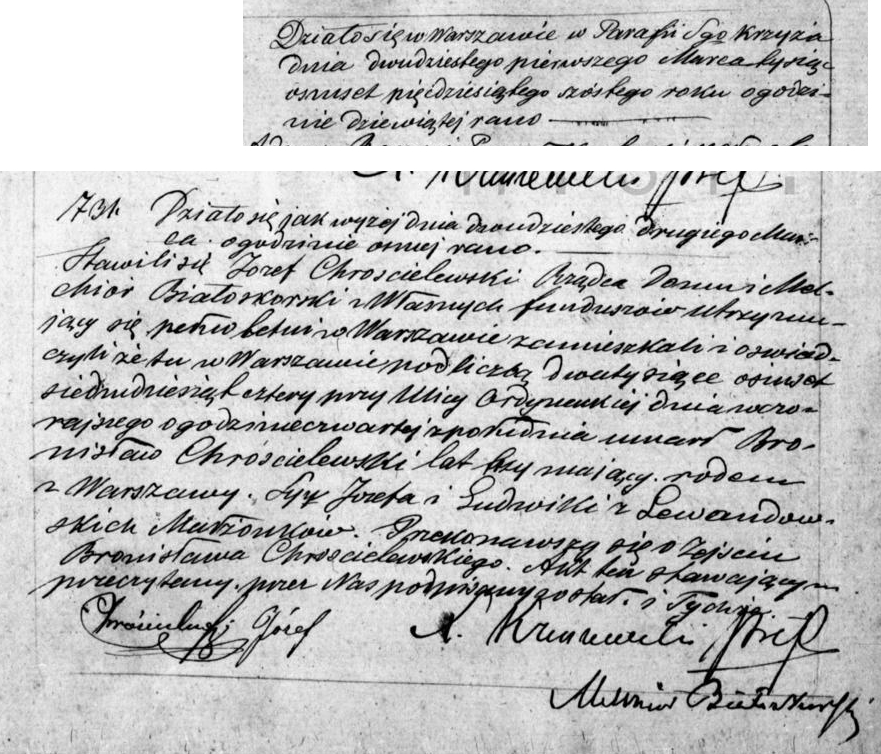 Działo się w Warszawie w Parafii Sgo Krzyża
dnia dwudziestego pierwszego Marca tysiąc
osmset pięcdziesiątego szóstego roku o godzi-
nie dziewiątej rano
731. Działo się jak wyżej dnia dwudziestego drugiego Mar-
ca o godzinie osmej rano.
Stawili się Józef Chroscielewski Rządca Domu i Mel-
chior Białoskorski z Własnych funduszow utrzymu-
jący się pełnoletni w Warszawie zamieszkali i oswiad-
czyli że tu w Warszawie pod liczbą dwa tysiące osmset
siedmdziesiąt cztery przy Ulicy Ordynackiej dnia wczo-
rajszego o godzinie czwartej z południa umarł Bro-
nisław Chróscielewski lat trzy mający, rodem
z Warszawy. Syn Jozefa i Ludwiki z Lewandow-
skich Małżonków. Przekonawszy się o Zejsciu
Bronisława Chroscielewskiego. Akt ten stawającym
przeczytany, przez Nas podpisany został. i Tychże
Józef A.
Melchior Białoskorski